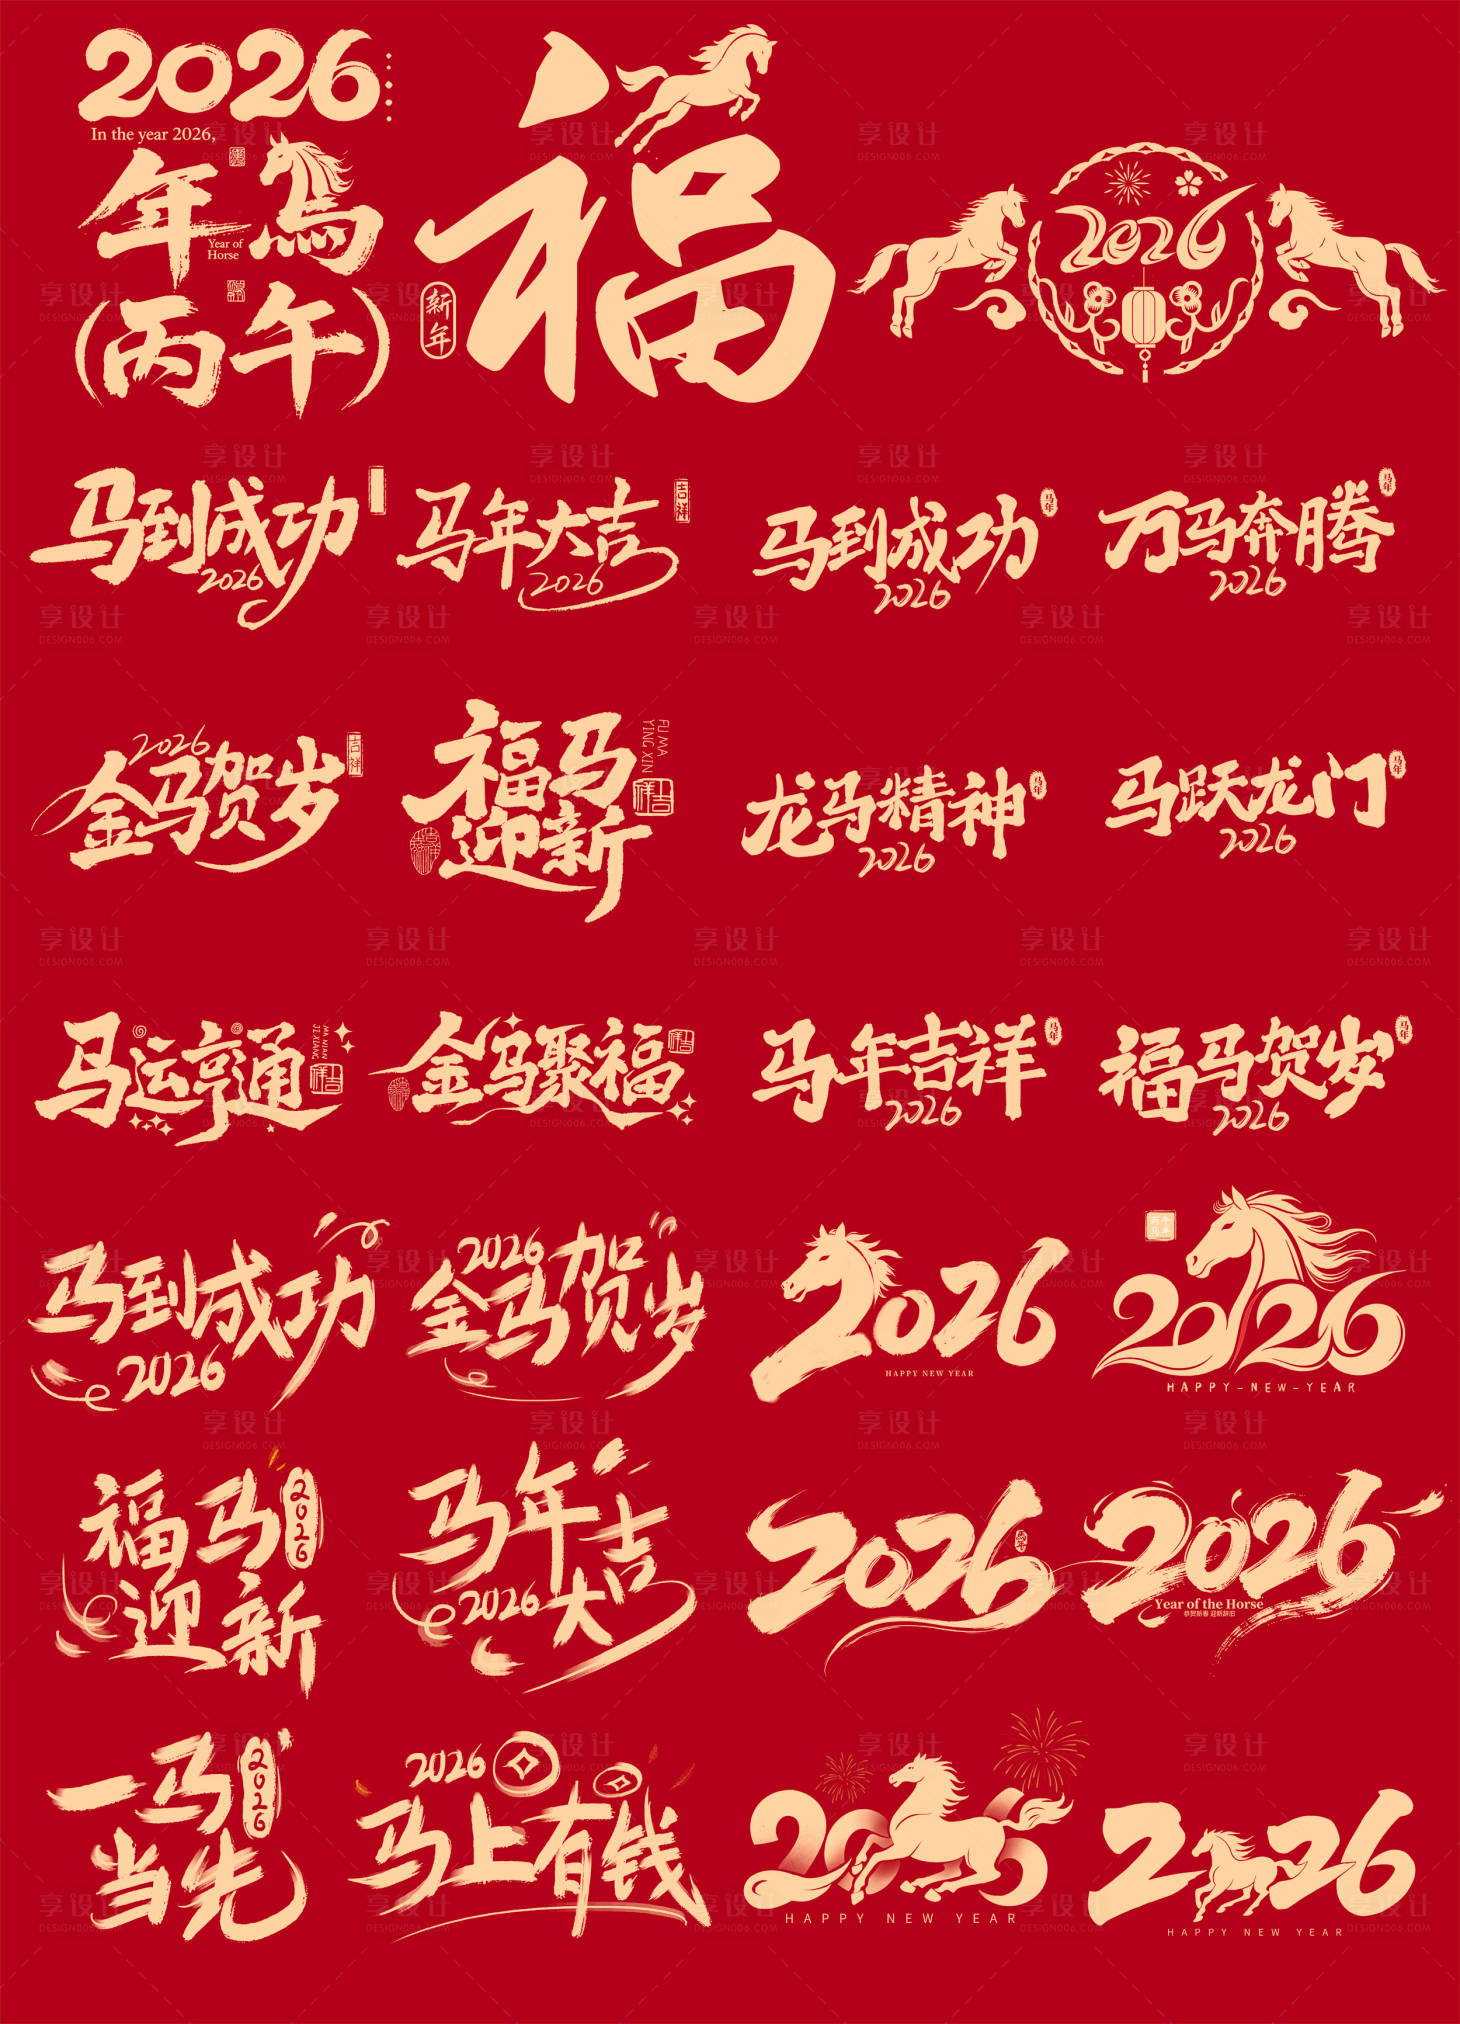 2026
In the year 2026,
年馬
Year of
Horse
(丙午)
福
新年
2026
马到成功
2026
马年大吉
2026
吉祥
马到成功
2026
马年
万马奔腾
2026
马年
2026
金马贺岁
吉祥
福马
迎新
FU MA
YING XIN
吉祥
龙马精神
2026
马年
马跃龙门
2026
马年
马运亨通
MA NIAN
JI XIANG
吉祥
金马聚福
吉祥
马年吉祥
2026
马年
福马贺岁
2026
马年
马到成功
2026
2026
金马贺岁
2026
HAPPY NEW YEAR
2026
HAPPY-NEW-YEAR
福马
迎新
2026
马年
大吉
2026
2026
2026
Year of the Horse
恭贺新春 迎新辞旧
一马
当先
2026
2026
马上有钱
2026
HAPPY NEW YEAR
2026
HAPPY NEW YEAR
享设计
DESIGN006.COM